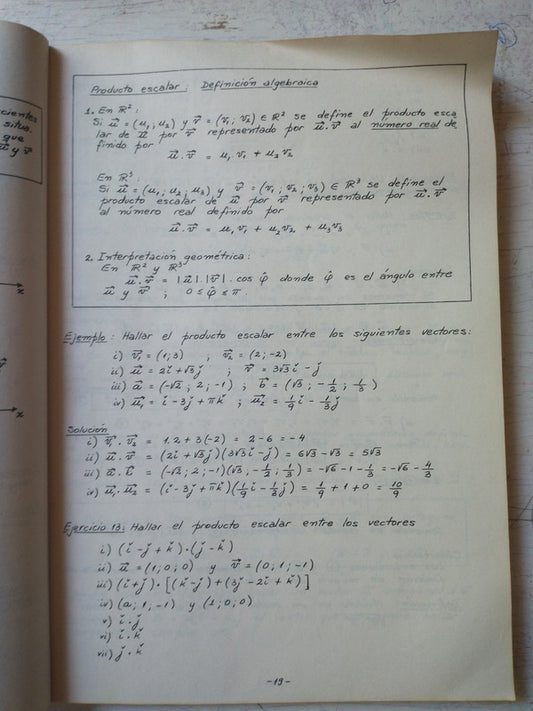 cientes
situa.
que
u⃗ y v⃗
x
v⃗
x
Producto escalar: Definición algebraica
1. En ℝ²:
Si u⃗ = (u₁, u₂) y v⃗ = (v₁; v₂) ∈ ℝ² se define el producto esca
lar de u⃗ por v⃗ representado por u⃗.v⃗ al número real de
finido por
u⃗.v⃗ = u₁v₁ + u₂v₂
En ℝ³:
Si u⃗ = (u₁; u₂; u₃) y v⃗ = (v₁; v₂; v₃) ∈ ℝ³ se define el
producto escalar de u⃗ por v⃗ representado por u⃗.v⃗
al número real definido por
u⃗.v⃗ = u₁v₁ + u₂v₂ + u₃v₃
2. Interpretación geométrica:
En ℝ² y ℝ³
u⃗.v⃗ = |u⃗|.|v⃗|.cos φ̂ donde φ̂ es el ángulo entre
u⃗ y v⃗ ; 0 ≤ φ̂ ≤ π.
Ejemplo: Hallar el producto escalar entre los siguientes vectores:
i) v⃗₁ = (1;3) ; v⃗₂ = (2;-2)
ii) u⃗ = 2ǐ + √3 ǰ ; v⃗ = 3√3 ǐ - ǰ
iii) a⃗ = (-√2; 2; -1) ; b⃗ = (√3; -1/2; 1/3)
iv) u⃗₁ = ǐ - 3ǰ + πǩ ; u⃗₂ = 1/9 ǐ - 1/3 ǰ
Solución
i) v⃗₁.v⃗₂ = 1.2 + 3(-2) = 2 - 6 = -4
ii) u⃗.v⃗ = (2ǐ + √3 ǰ)(3√3 ǐ - ǰ) = 6√3 - √3 = 5√3
iii) a⃗.b⃗ = (-√2; 2; -1)(√3; -1/2; 1/3) = -√6 - 1 - 1/3 = -√6 - 4/3
iv) u⃗₁.u⃗₂ = (ǐ - 3ǰ + πǩ)(1/9 ǐ - 1/3 ǰ) = 1/9 + 1 + 0 = 10/9
Ejercicio 13: Hallar el producto escalar entre los vectores
i) (ǐ - ǰ + ǩ).(ǰ - ǩ)
ii) u⃗ = (1;0;0) y v⃗ = (0;1;-1)
iii) (ǐ + ǰ).[(ǩ - ǰ) + (3ǰ - 2ǐ + ǩ)]
iv) (a;1,-1) y (1;0;0)
v) ǐ.ǰ
vi) ǐ.ǩ
vii) ǰ.ǩ
-19-